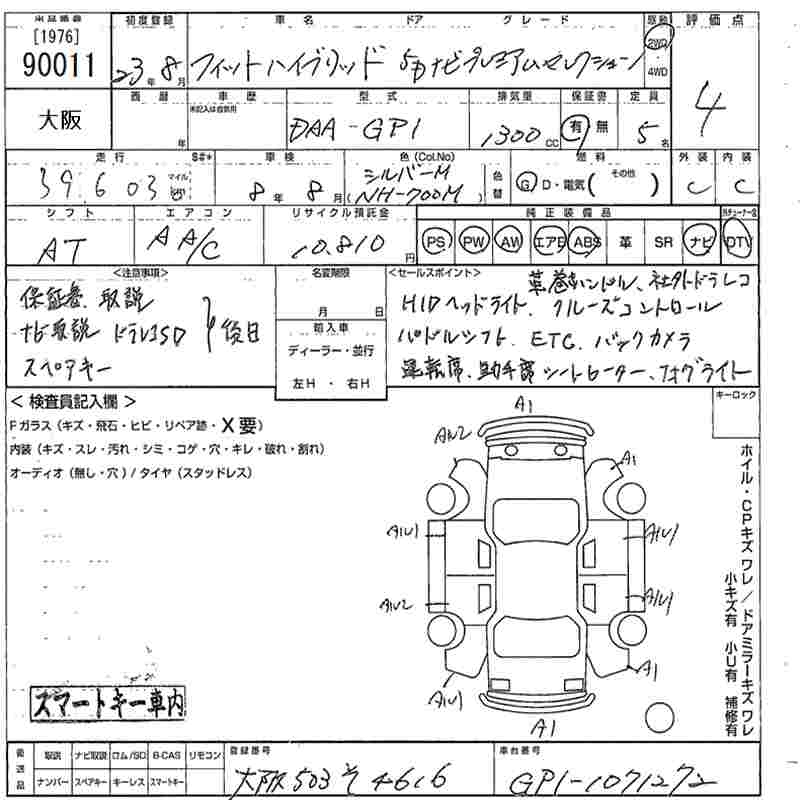 出品番号 初度登録 車名 ドア グレード 駆動 評価点
[1976]
90011
23年 8月 フィットハイブリッド 5D ナビプレミアムセレクション 2WD 4WD
4
西暦 車歴 型式 排気量 保証書 定員
大阪
年 未記入は自家用 DAA-GP1 1300cc 有 無 5名
走行 S#* 車検 色(Col.No) 燃料 外装 内装
39,603 マイル km 8年 8月 シルバーM (NH-700M) 色替 G D・電気( その他 ) C C
シフト エアコン リサイクル預託金 純正装備品
AT AA/C 10,810円 PS PW AW エアB ABS 革 SR ナビ DTV
<注意事項>
保証書、取説
ナビ取説 ドラレコSD
スペアキー
後日
名変期限
月 日
輸入車
ディーラー・並行
左H・右H
<セールスポイント>
革巻ハンドル、社外ドラレコ
HIDヘッドライト、クルーズコントロール
パドルシフト、ETC、バックカメラ
運転席、助手席シートヒーター、フォグライト
< 検査員記入欄 >
Fガラス (キズ・飛石・ヒビ・リペア跡・X要)
内装 (キズ・スレ・汚れ・シミ・コゲ・穴・キレ・破れ・割れ)
オーディオ (無し・穴) / タイヤ (スタッドレス)
キーロック
A1
AW2
A1
A1U1
A1U1
A1U2
A1U1
A1U1
A1
A1
ホイル・CPキズ ワレ / ドアミラーキズ ワレ
小キズ有 小U有 補修有
スマートキー車内
後送品 取説 ナビ取説 ロム/SD B-CAS リモコン
ナンバー スペアキー キーレス スマートキー
登録番号
大阪 503 そ 4616
車台番号
GP1-1071272